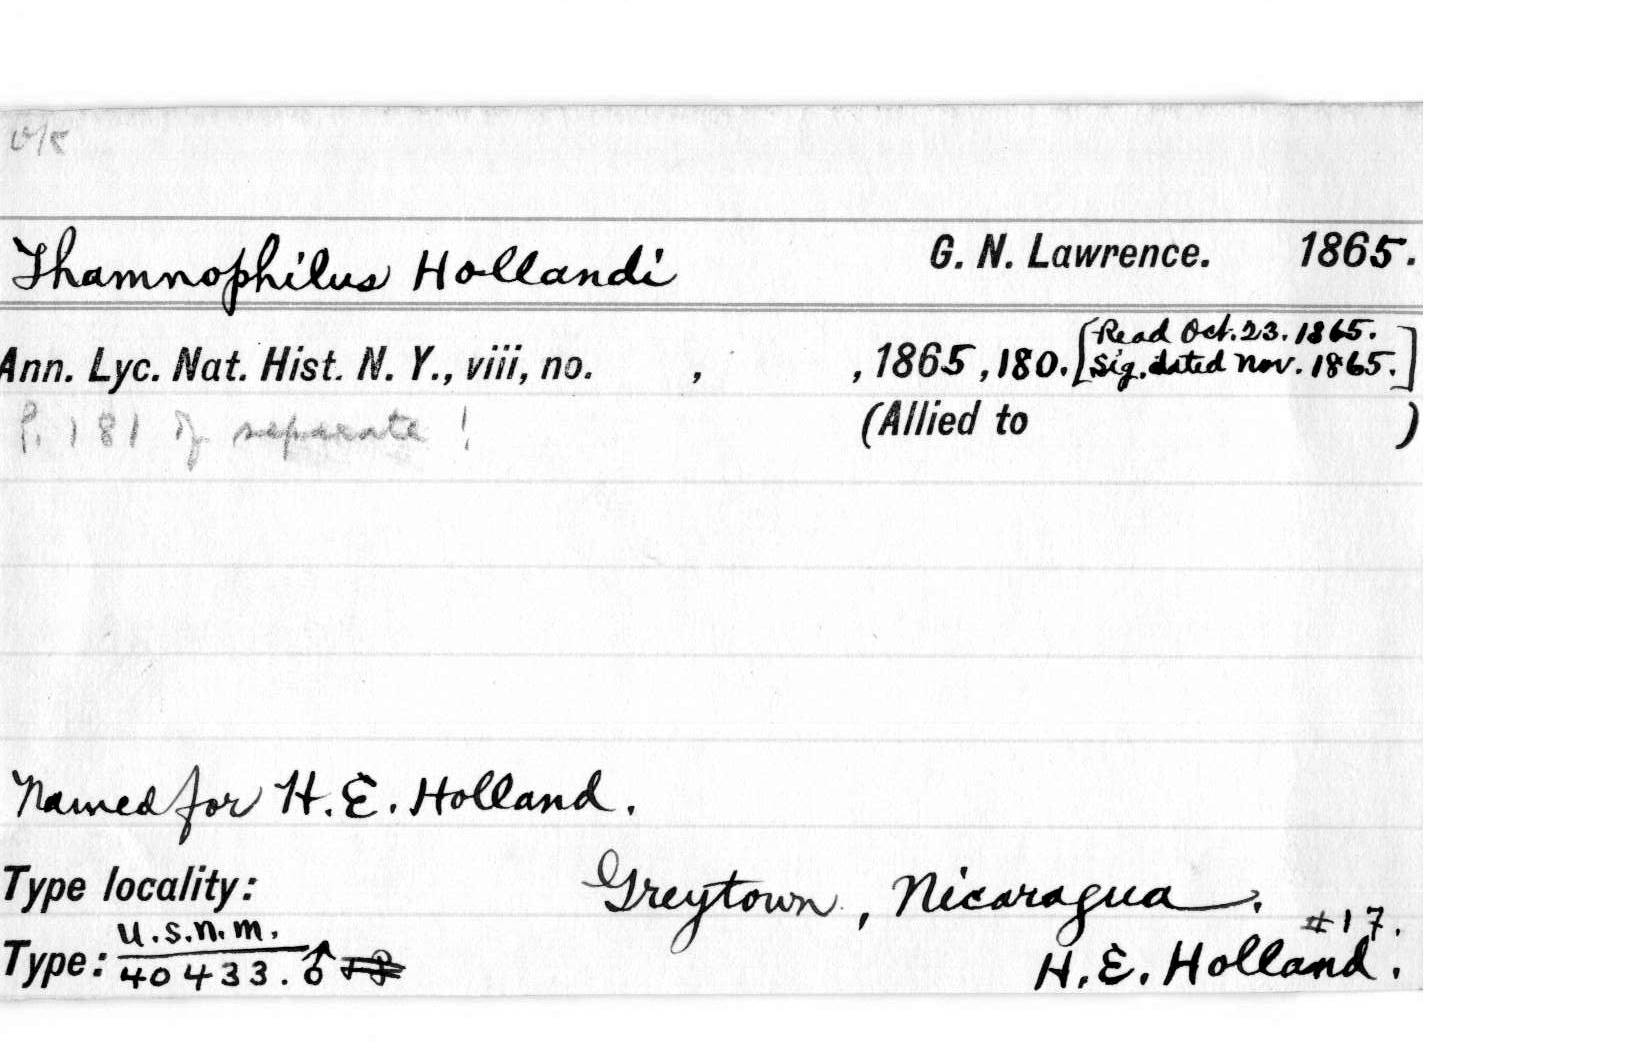 Thamnophilus Hollandi G. N. Lawrence. 1865.
Ann. Lyc. Nat. Hist. N. Y., viii, no. , , 1865, 180. [Read Oct. 23. 1865. Sig. dated Nov. 1865.]
p. 181 of separate! (Allied to )
Named for H. E. Holland.
Type locality: Greytown, Nicaragua.
#17.
Type: U.S.N.M. 40433. ♂ H. E. Holland.